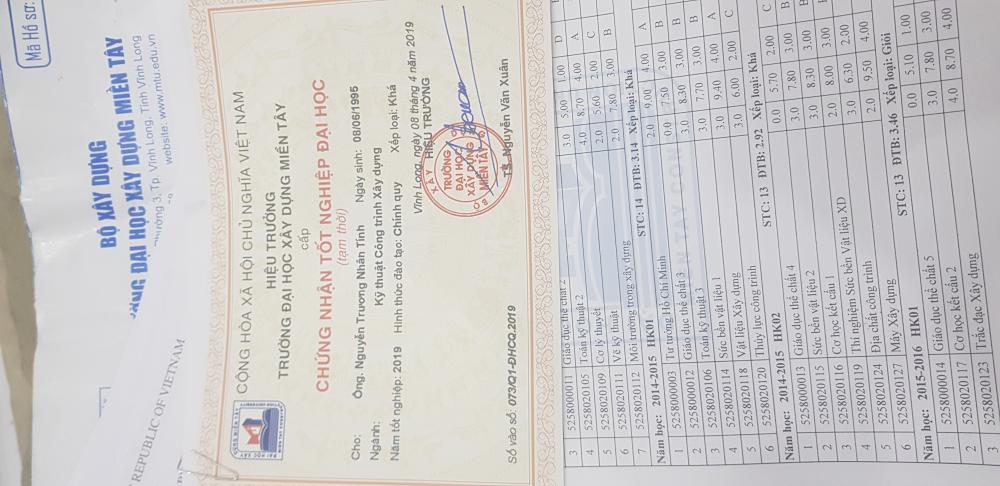 Mã Hồ sơ:
BỘ XÂY DỰNG
ĐẠI HỌC XÂY DỰNG MIỀN TÂY
Phường 3, Tp. Vĩnh Long, Tỉnh Vĩnh Long
website: www.mtu.edu.vn
REPUBLIC OF VIETNAM
CỘNG HÒA XÃ HỘI CHỦ NGHĨA VIỆT NAM
HIỆU TRƯỞNG
TRƯỜNG ĐẠI HỌC XÂY DỰNG MIỀN TÂY
cấp
CHỨNG NHẬN TỐT NGHIỆP ĐẠI HỌC
(tạm thời)
Cho: Ông. Nguyễn Trương Nhân Tính Ngày sinh: 08/06/1995
Ngành: Kỹ thuật Công trình Xây dựng
Năm tốt nghiệp: 2019 Hình thức đào tạo: Chính quy Xếp loại: Khá
Vĩnh Long, ngày 08 tháng 4 năm 2019
HIỆU TRƯỞNG
TRƯỜNG
ĐẠI HỌC
XÂY DỰNG
MIỀN TÂY
TS. Nguyễn Văn Xuân
Số vào sổ: 073/Q1-ĐHCQ.2019
3 5258000011 Giáo dục thể chất 2 3.0 5.00 1.00 D
4 5258020105 Toán kỹ thuật 2 4.0 8.70 4.00 A
5 5258020109 Cơ lý thuyết 2.0 5.60 2.00 C
6 5258020111 Vẽ kỹ thuật 2.0 7.80 3.00 B
7 5258020112 Môi trường trong xây dựng STC: 14 ĐTB: 3.14 Xếp loại: Khá
Năm học: 2014-2015 HK01
1 5258000003 Tư tưởng Hồ Chí Minh 2.0 9.00 4.00 A
2 5258000012 Giáo dục thể chất 3 0.0 7.50 3.00 B
3 5258020106 Toán kỹ thuật 3 3.0 8.30 3.00 B
4 5258020114 Sức bền vật liệu 1 3.0 7.70 3.00 B
5 5258020118 Vật liệu Xây dựng 3.0 9.40 4.00 A
6 5258020120 Thủy lực công trình 3.0 6.00 2.00 C
STC: 13 ĐTB: 2.92 Xếp loại: Khá
Năm học: 2014-2015 HK02
1 5258000013 Giáo dục thể chất 4 0.0 5.70 2.00 C
2 5258020115 Sức bền vật liệu 2 3.0 7.80 3.00 B
3 5258020116 Cơ học kết cấu 1 3.0 8.30 3.00
4 5258020119 Thí nghiệm Sức bền Vật liệu XD 2.0 8.00 3.00
5 5258020124 Địa chất công trình 3.0 6.30 2.00
6 5258020127 Máy Xây dựng 2.0 9.50 4.00
STC: 13 ĐTB: 3.46 Xếp loại: Giỏi
Năm học: 2015-2016 HK01
1 5258000014 Giáo dục thể chất 5 0.0 5.10 1.00
2 5258020117 Cơ học kết cấu 2 3.0 7.80 3.00
3 5258020123 Trắc đạc Xây dựng 4.0 8.70 4.00